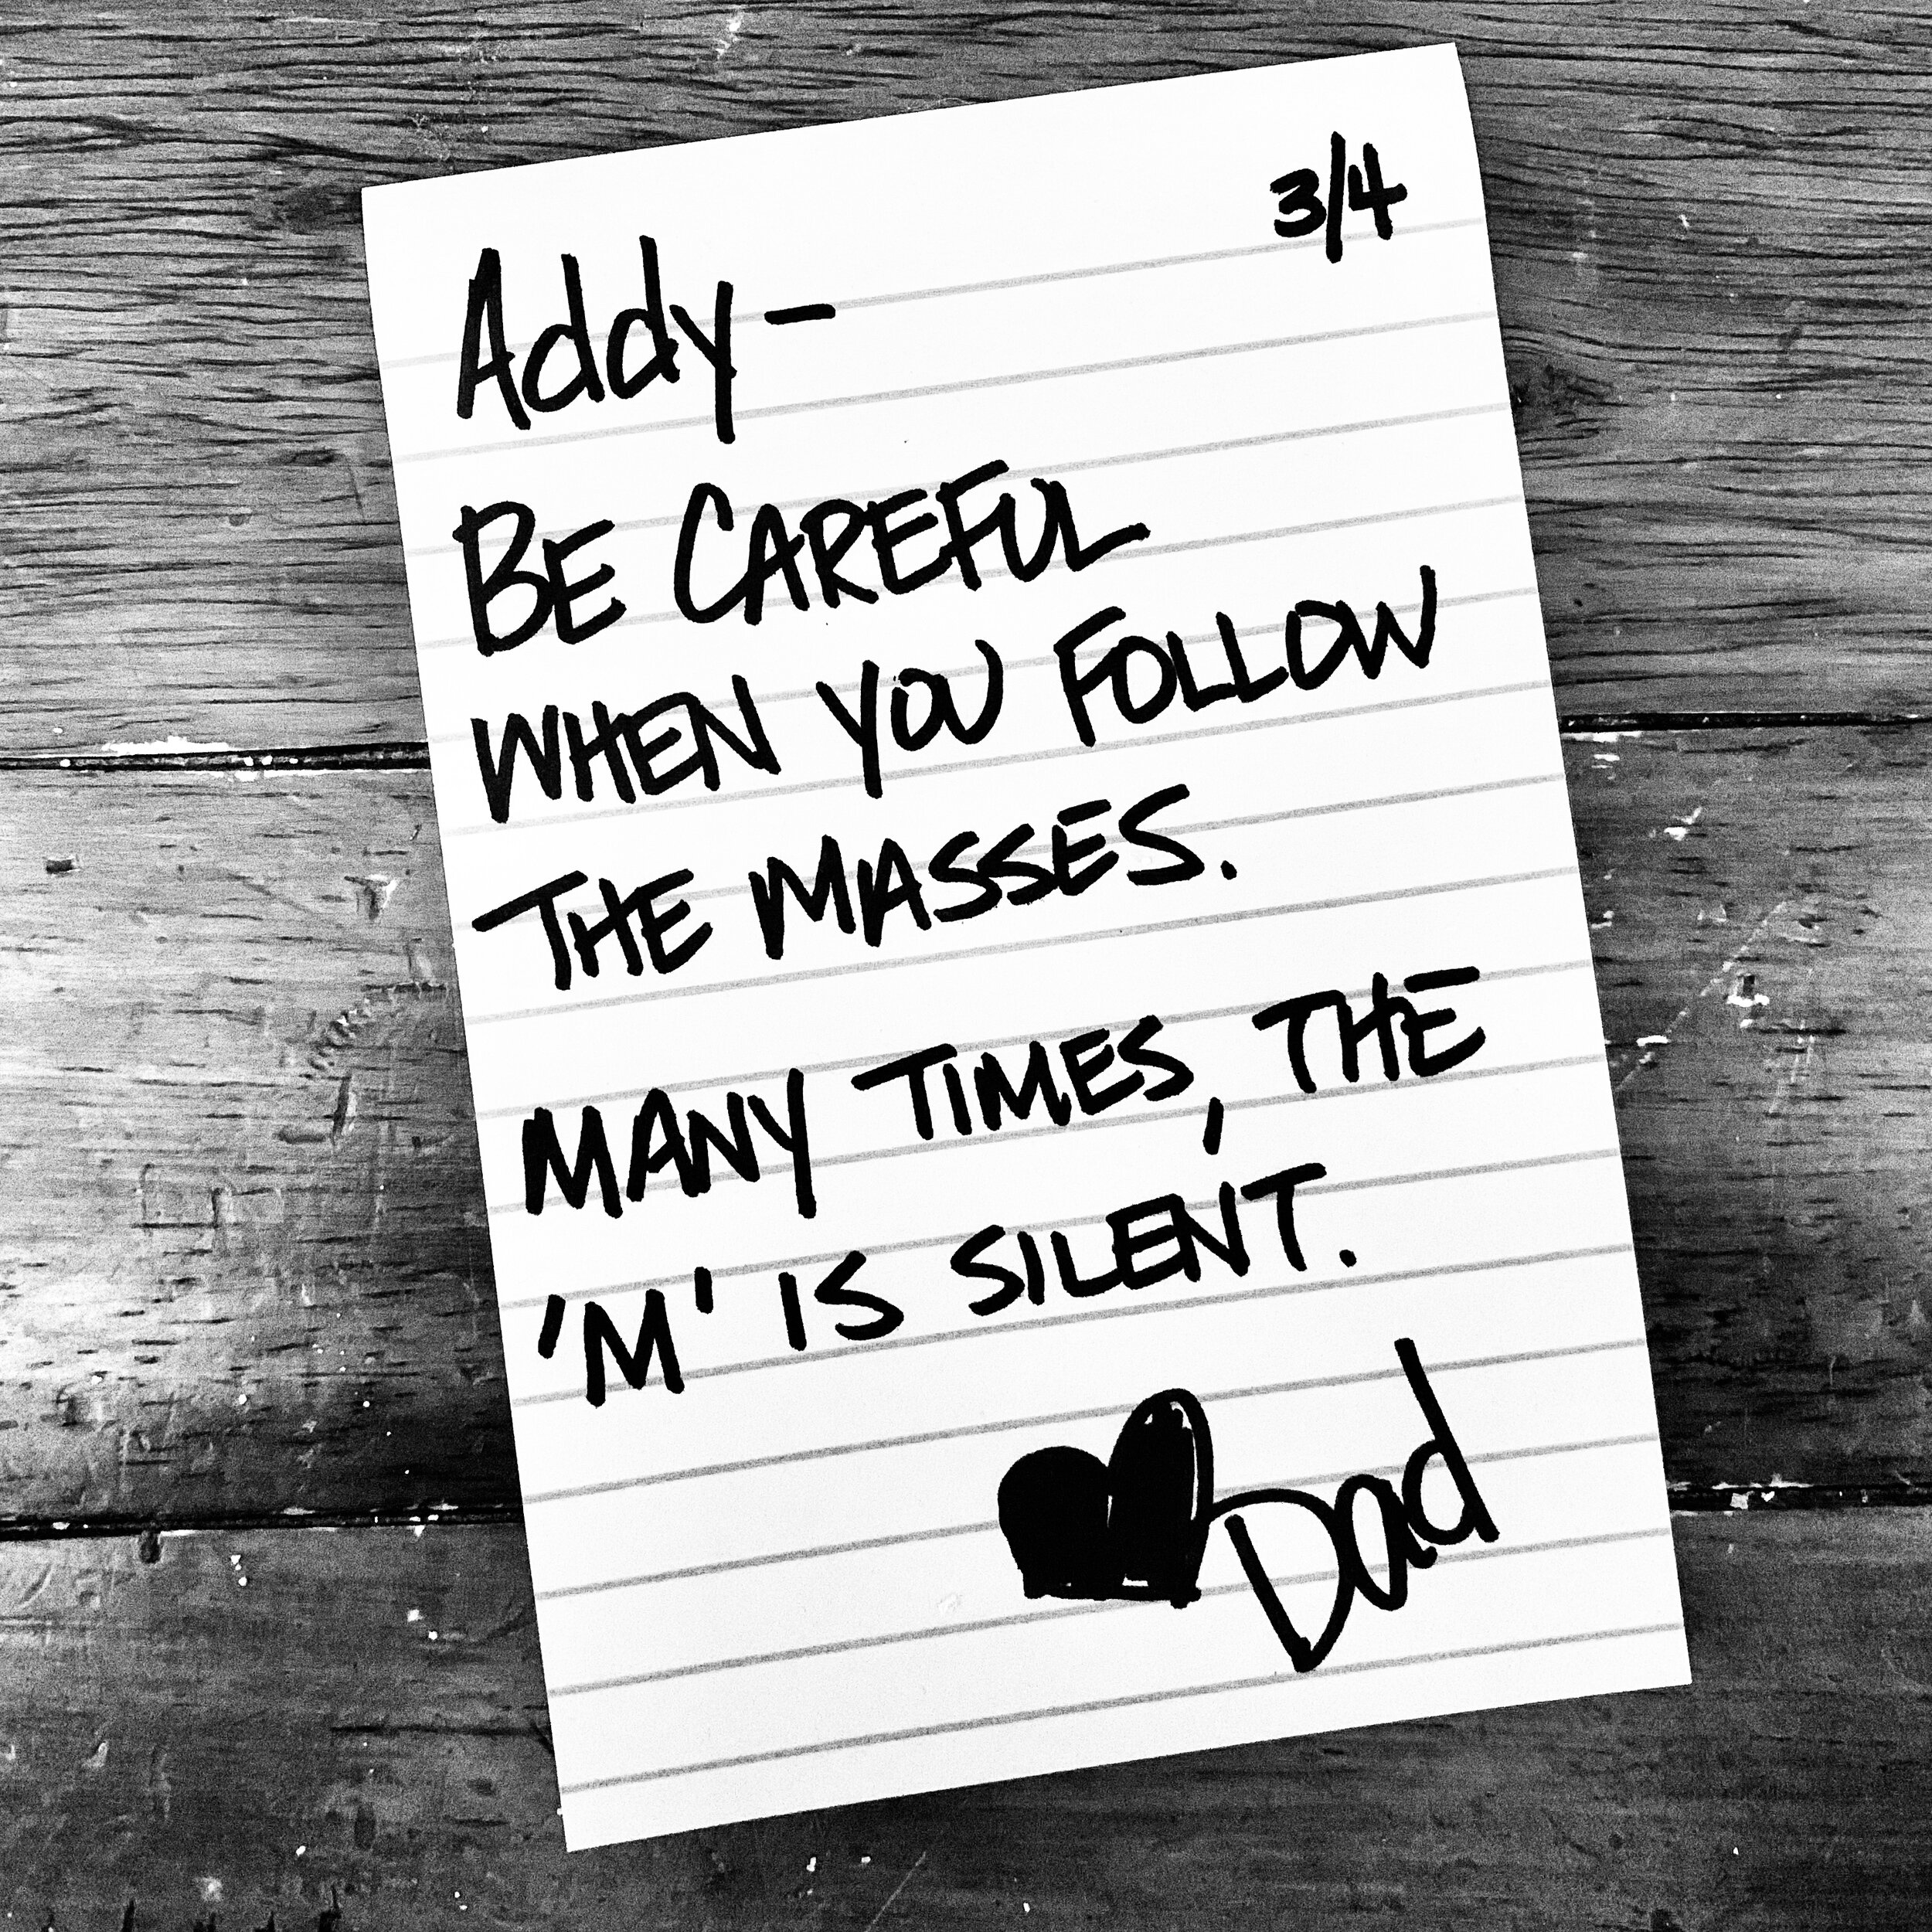 3/4
Addy-
BE CAREFUL
WHEN YOU FOLLOW
THE MASSES.
MANY TIMES, THE
'M' IS SILENT.
Dad